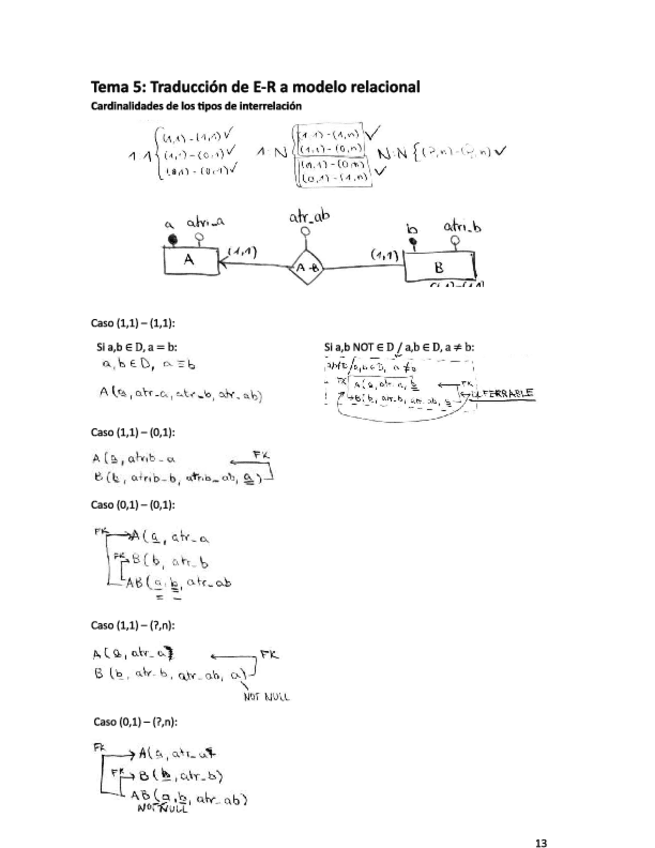 Tema 5: Traducción de E-R a modelo relacional
Cardinalidades de los tipos de interrelación
1:1 { (1,1) - (1,1) ✓
(1,1) - (0,1) ✓
(0,1) - (0,1) ✓
1:N { (1,1) - (1,n) ✓
(1,1) - (0,n)
(0,1) - (0,n) ✓
(0,1) - (1,n)
N:N { (?,n) - (?,n) ✓
a atri_a
atr_ab
b atri_b
A
(1,1)
A-B
(1,1)
B
Caso (1,1) – (1,1):
Si a,b ∈ D, a = b:
a, b ∈ D, a ≡ b
A (a, atr_a, atr_b, atr_ab)
Si a,b NOT ∈ D / a,b ∈ D, a ≠ b:
a,b ∈ D, a ≠ b
FK A(a, atr_a, b FK
B(b, atr_b, atr_ab, a DIFERRABLE
Caso (1,1) – (0,1):
A (a, atrib_a FK
B (b, atrib_b, atrib_ab, a)
Caso (0,1) – (0,1):
FK A (a, atr_a
FK B (b, atr_b
AB (a, b, atr_ab
Caso (1,1) – (?,n):
A (a, atr_a) FK
B (b, atr_b, atr_ab, a)
NOT NULL
Caso (0,1) – (?,n):
FK A(a, atr_a
FK B (b, atr_b)
AB (a, b, atr_ab)
NOT NULL
13